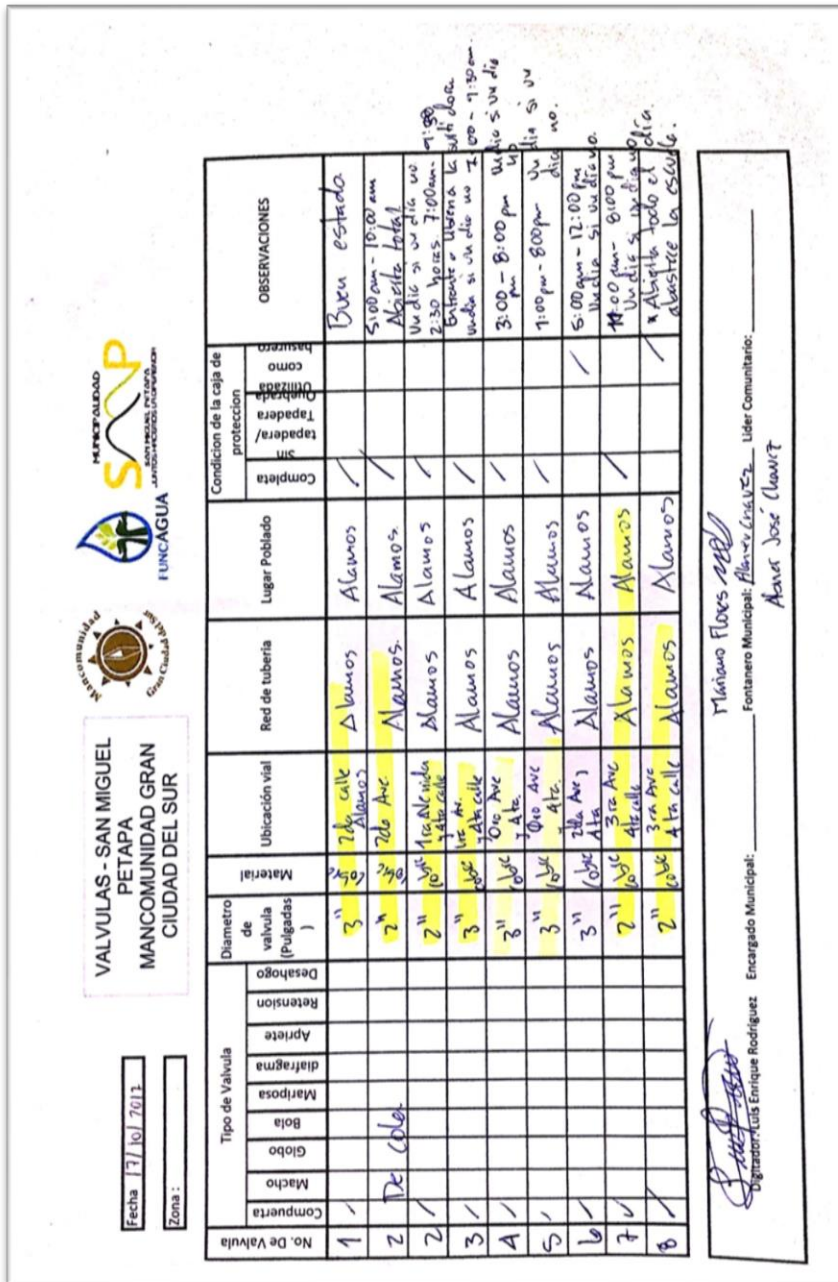 Fecha 17/10/2012
Zona :
VALVULAS - SAN MIGUEL
PETAPA
MANCOMUNIDAD GRAN
CIUDAD DEL SUR
Mancomunidad
Gran Ciudad del Sur
FUNCAGUA
MUNICIPALIDAD
SAN MIGUEL PETAPA
No. De Valvula
Tipo de Valvula
Compuerta
Macho
Globo
Bola
Mariposa
diafragma
Apriete
Retension
Desahogo
Diametro
de
valvula
(Pulgadas
)
Material
Ubicación vial
Red de tuberia
Lugar Poblado
Condicion de la caja de
proteccion
Completa
sin
tapadera/
Tapadera
Quebrada
Utilizada
como
basurero
OBSERVACIONES
1 / 3" 2da calle Alamos Alamos Alamos / Buen estado
2 De cola 2" 2da Ave. Alamos. Alamos. / 5:00am - 10:00 am
Abierta total
2 / 2" cobre 1ra Avenida y 4ta calle Alamos Alamos / Un dia si un dia no
2:30 horas. 7:00am - 9:30
3 / 3" cobre 1ra Av. y 4ta calle Alamos Alamos / Entrante
un dia si un dia no 7:00 - 9:30am.
4 / 3" cobre 0ro Ave y 4ta. Alamos Alamos / 3:00 - 8:00 pm un dia si un dia no
5 / 3" cobre 0ro Ave y 4ta. Alamos Alamos / 1:00 pm - 8:00pm Un dia si un dia no.
6 / 3" cobre 2da Ave, 4ta Alamos Alamos / 5:00am - 12:00pm
Un dia si un dia no.
7 / 2" cobre 3ra Ave 4ta calle Alamos Alamos / 8:00 pm
Un dia si un dia no
8 / 2" cobre 3ra Ave 4ta calle Alamos Alamos / * Abierta todo el dia
abastece la escuela.
Mariano Flores
Digitador: Luis Enrique Rodriguez Encargado Municipal: Fontanero Municipal: Abner Chavez Lider Comunitario:
Abner José Chavez